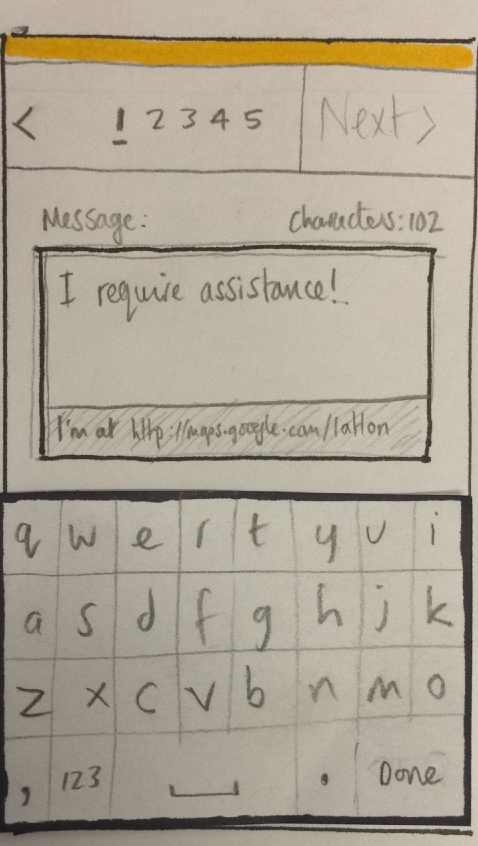 < 1 2 3 4 5 Next >
Message: Characters: 102
I require assistance!
I'm at http://maps.google.com/latlon
q w e r t y u i
a s d f g h j k
z x c v b n m o
, 123 . Done